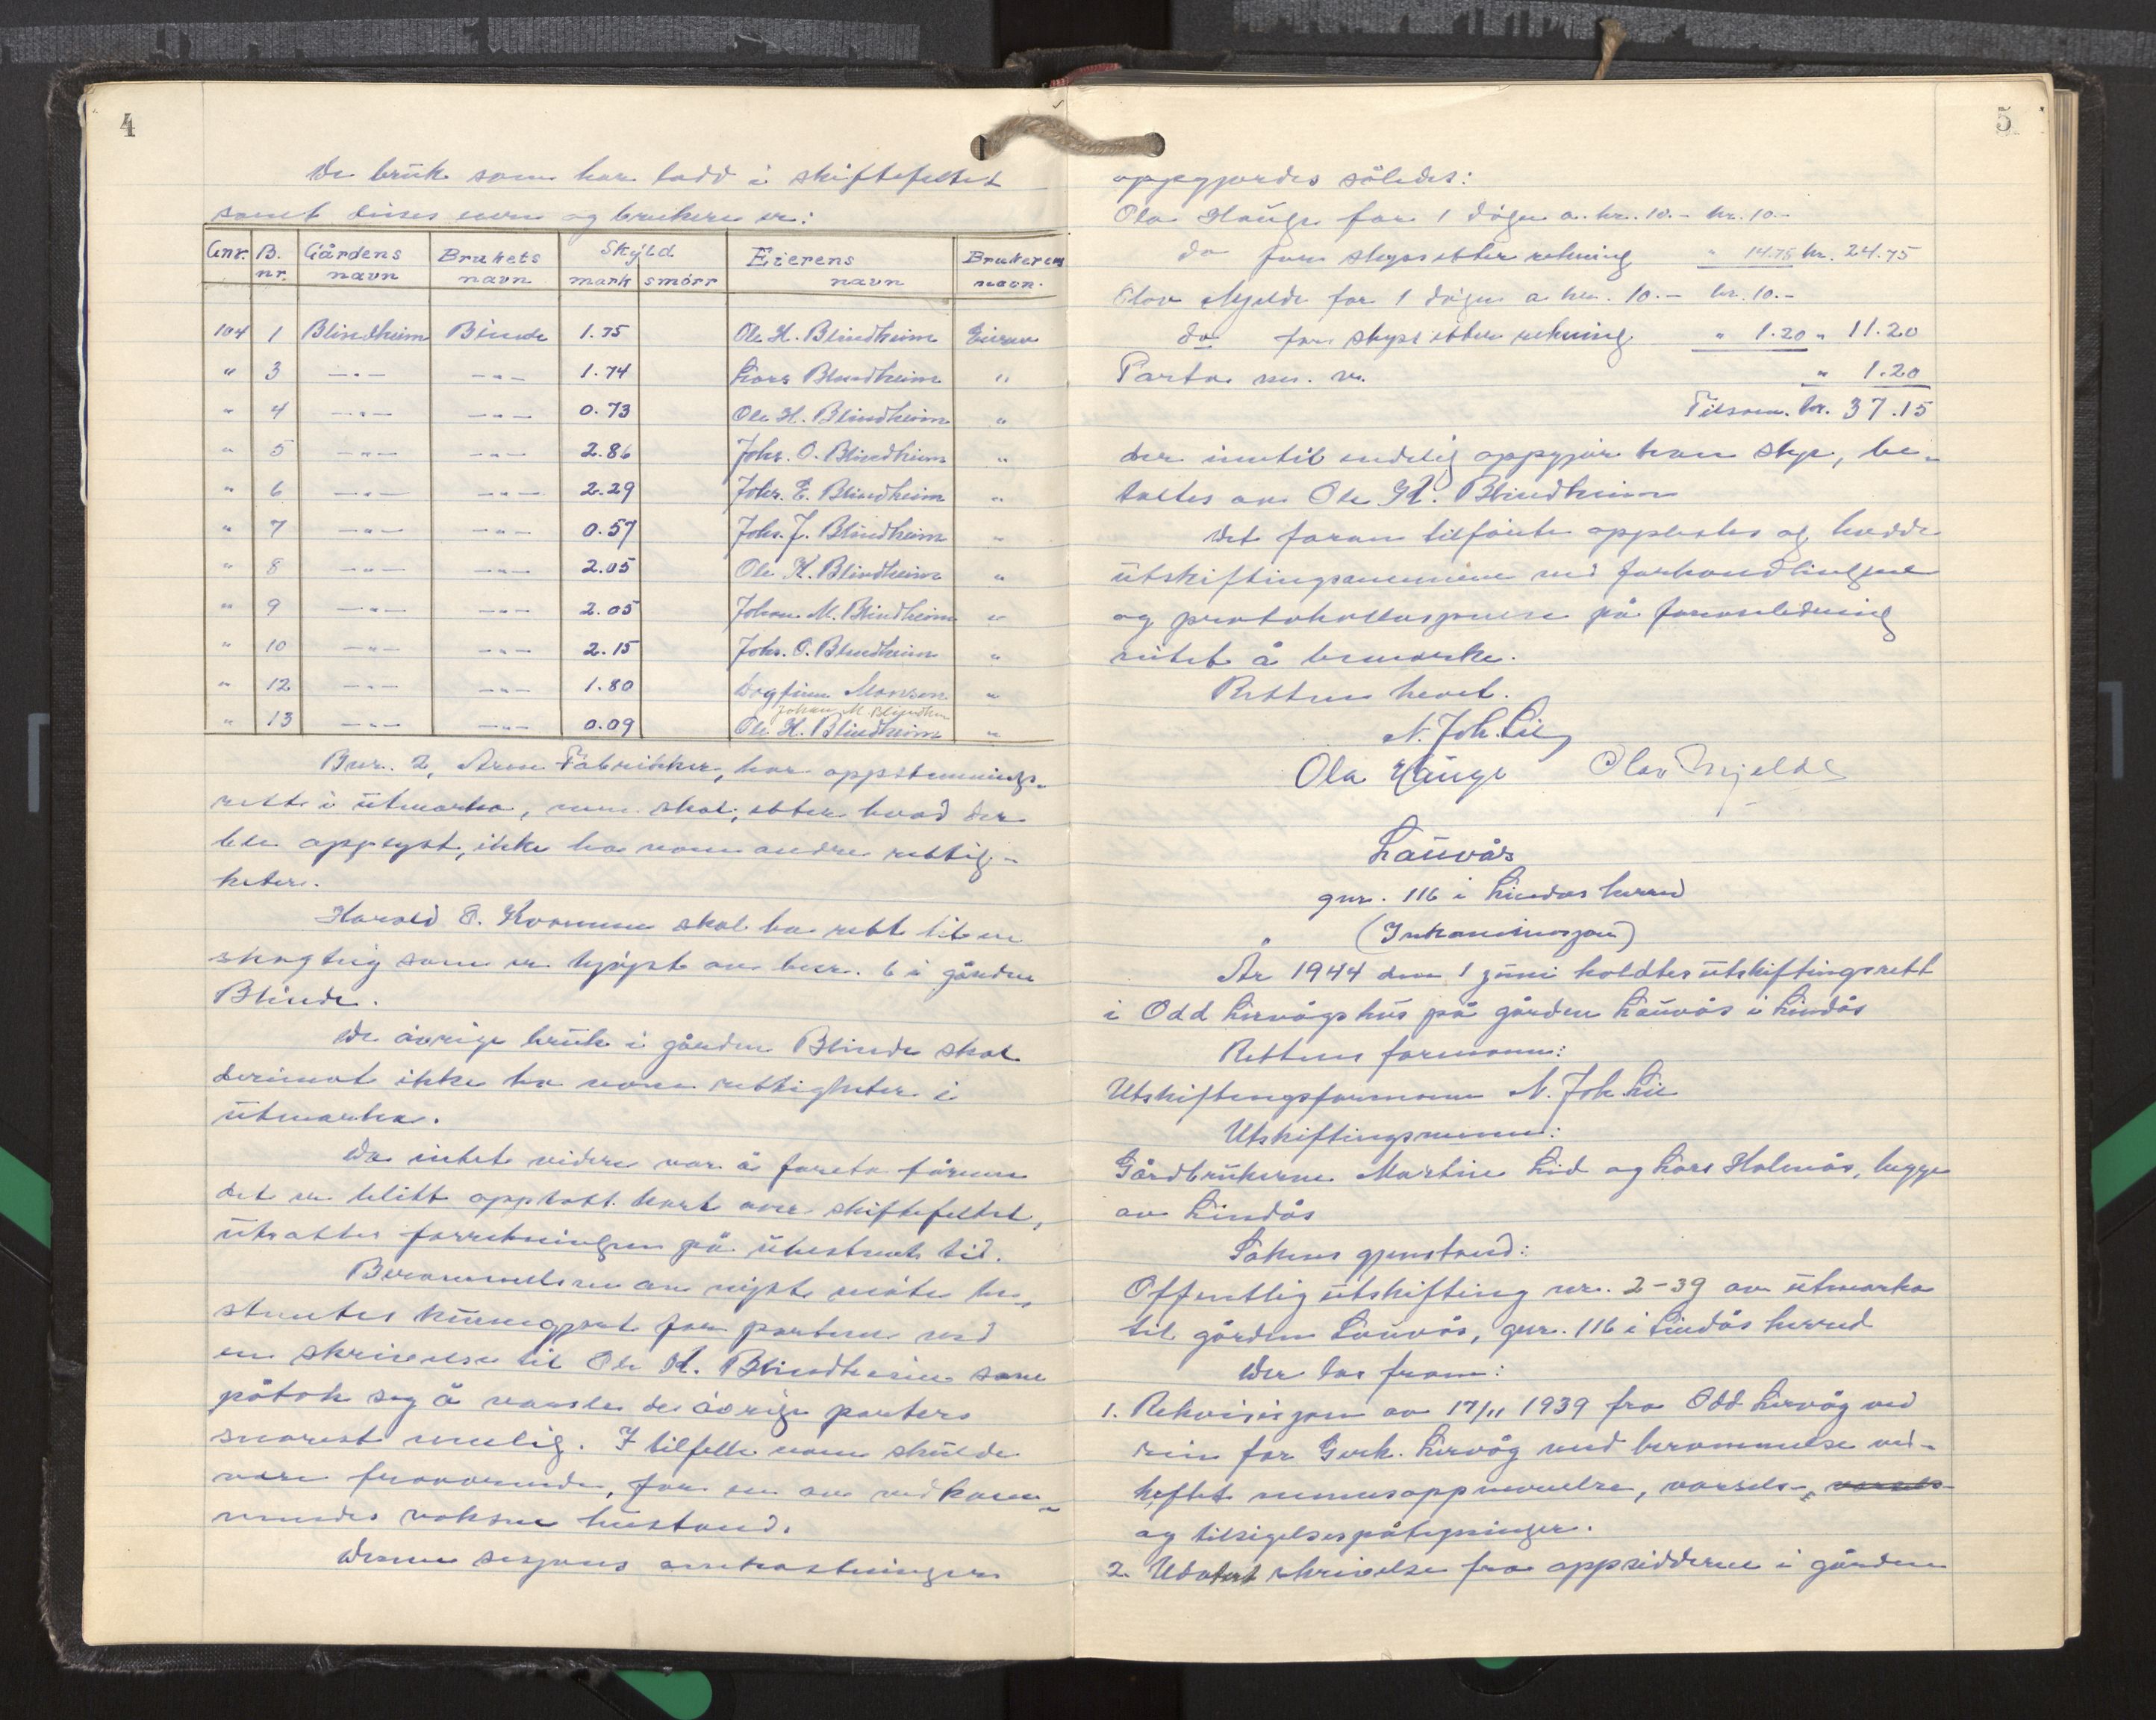 4
De bruk som har lodd i skiftefeltet
samt disses eiere og brukere er:
Gnr. B. nr. Gårdens navn Brukets navn Skyld mark smörr Eierens navn Brukerens navn.
104 1 Blindheim Blinde 1.75 Ole H. Blindheim Eieren
" 3 —"— —"— 1.74 Lars Blindheim "
" 4 —"— —"— 0.73 Ole H. Blindheim "
" 5 —"— —"— 2.86 Johs. O. Blindheim "
" 6 —"— —"— 2.29 Johs. E. Blindheim "
" 7 —"— —"— 0.57 Johs. J. Blindheim "
" 8 —"— —"— 2.05 Ole K. Blindheim "
" 9 —"— —"— 2.05 Johan M. Blindheim "
" 10 —"— —"— 2.15 Johs. O. Blindheim "
" 12 —"— —"— 1.80 Dagfinn Monsen "
Johan M. Blindheim
" 13 —"— —"— 0.09 Ole H. Blindheim "
Bnr. 2, Arne Fabrikker, har oppdemnings-
rett i utmarka, men skal, etter hvad der
ble opplyst, ikke ha noen andre rettig-
heter.
Harald E. Kvamme skal ha rett til en
skogteig som er kjöpt av bnr. 6 i gården
Blinde.
De övrige bruk i gården Blinde skal
derimot ikke ha noen rettigheter i
utmarka.
Da intet videre var å foreta förenn
det er blitt opptatt kart over skiftefeltet,
utsattes forretningen på ubestemt tid.
Berammelsen av neste möte be-
stemtes kunngjort for partene ved
en skrivelse til Ole K. Blindheim som
påtok seg å varsle de övrige parter
snarest mulig. I tilfelle noen skulde
være fraværende, for en av vedkom-
mendes voksne husstand.
Denne sesjons omkostninger
5
oppgjordes således:
Ola Hauge for 1 dögn a kr. 10.- kr. 10.-
do for skyss etter rekning " 14.75 kr. 24.75
Olav Mjelde for 1 dögn a kr. 10.- kr. 10.-
do for skyss etter rekning " 1.20 " 11.20
Porto m. v. " 1.20
Tilsam. kr. 37.15
der inntil endelig oppgjör kan skje, be-
taltes av Ole K. Blindheim
Det foran tilförte opplestes og hadde
utskiftingsmennene ved forhandlingene
og protokollasjonen på foranledning
intet å bemerke.
Retten hevet.
N. Joh. Lie
Ola Hauge Olav Mjelde
Lauvås
gnr. 116 i Lindås herred
(Inkaminasjon)
År 1944 den 1 juni holdtes utskiftingsrett
i Odd Lervågs hus på gården Lauvås i Lindås
Rettens formann:
Utskiftingsformann N. Joh Lie
Utskiftingsmenn:
Gårdbrukerne Martin Lid og Lars Holmås, begge
av Lindås
Sakens gjenstand:
Offentlig utskifting nr. 2-39 av utmarka
til gården Lauvås, gnr. 116 i Lindås herred
Der las fram:
1. Rekvisisjon av 17/11 1939 fra Odd Lervåg ved
sin far Gerh. Lervåg med berammelse ved-
heftet mennsoppnevnelse, varsels-, varsels-
og tilsigelsespåtegninger.
2. Udatert skrivelse fra oppsidderne i gården